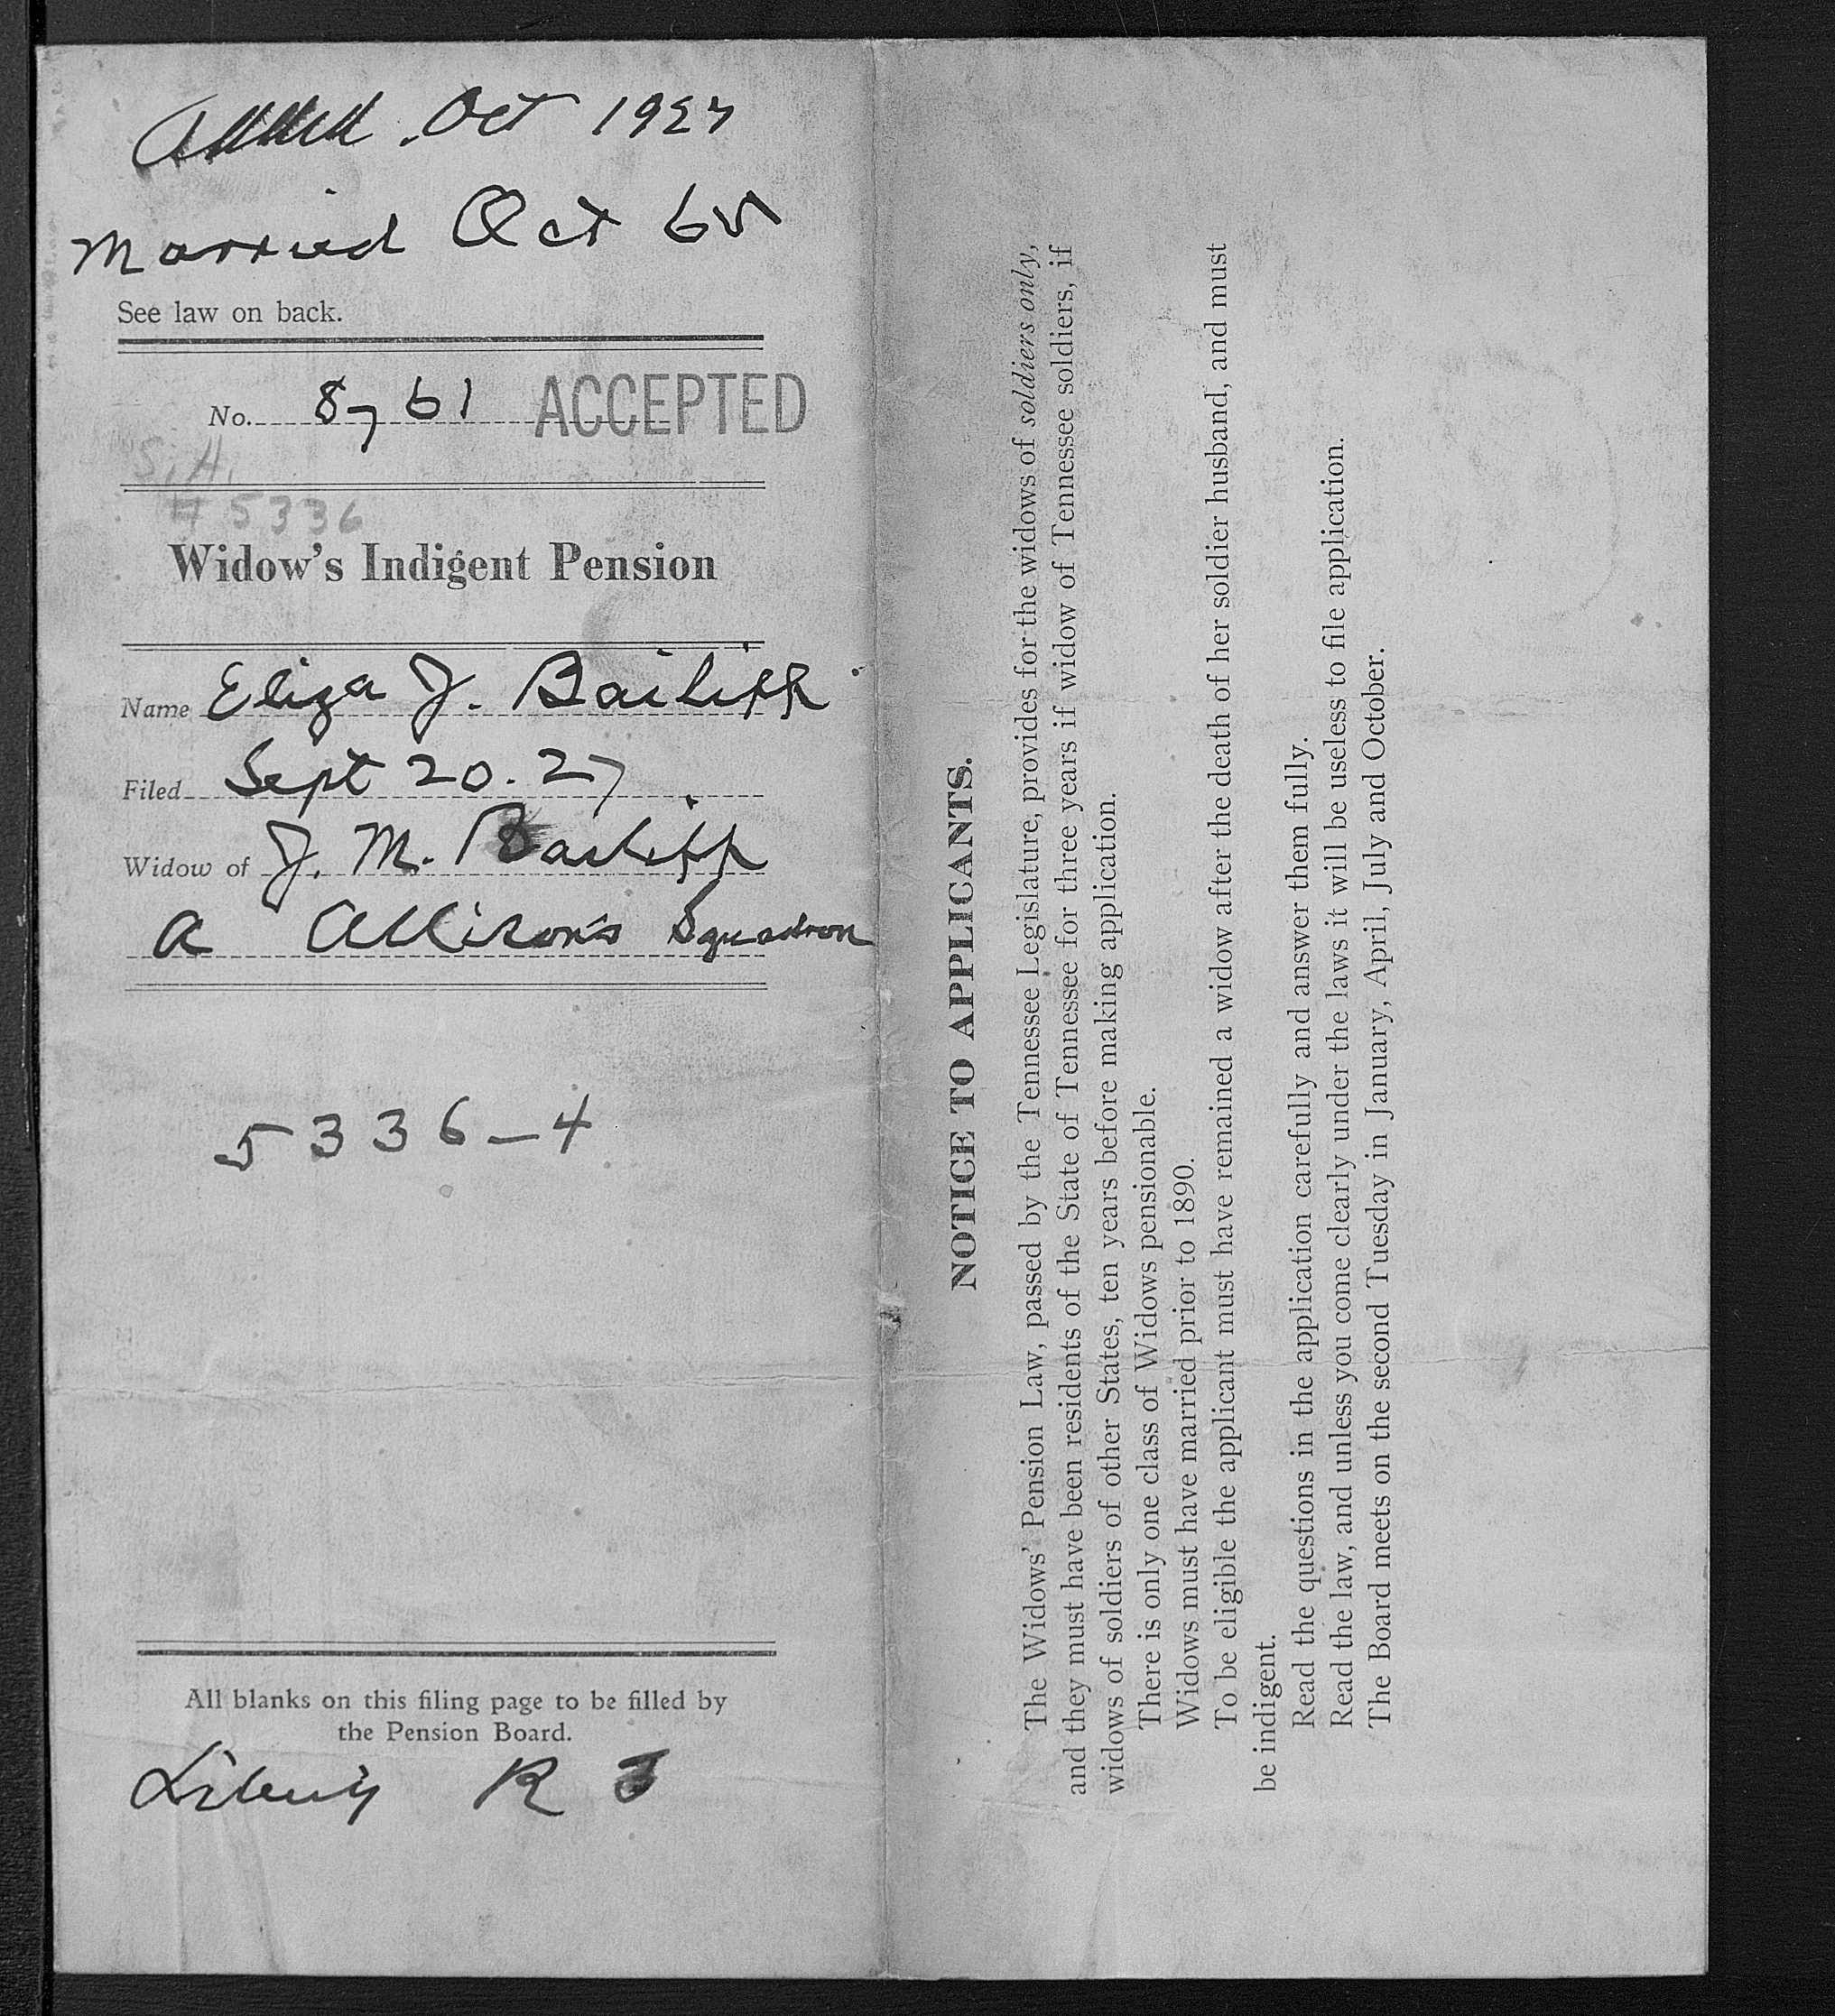 Allowed Oct 1927
Married Oct 65
See law on back.
No. 8761 ACCEPTED
S. A.
# 5336
Widow's Indigent Pension
Name Eliza J. Bailiff
Filed Sept 20. 27
Widow of J. M. Bailiff
A Allison's Squadron
5336-4
All blanks on this filing page to be filled by
the Pension Board.
Liberty R 3
NOTICE TO APPLICANTS.
The Widows' Pension Law, passed by the Tennessee Legislature, provides for the widows of soldiers only,
and they must have been residents of the State of Tennessee for three years if widow of Tennessee soldiers, if
widows of soldiers of other States, ten years before making application.
There is only one class of Widows pensionable.
Widows must have married prior to 1890.
To be eligible the applicant must have remained a widow after the death of her soldier husband, and must
be indigent.
Read the questions in the application carefully and answer them fully.
Read the law, and unless you come clearly under the laws it will be useless to file application.
The Board meets on the second Tuesday in January, April, July and October.